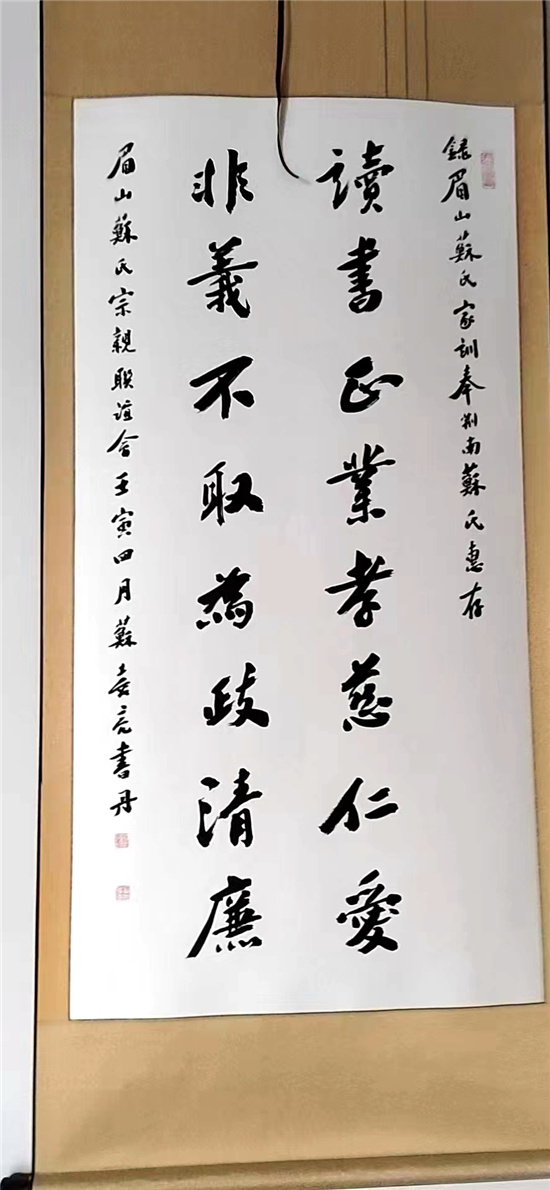 録眉山蘇氏家訓奉荆南蘇氏惠存
讀書正業孝慈仁愛
非義不取為政清廉
眉山蘇氏宗親聯誼會壬寅四月蘇亮書丹